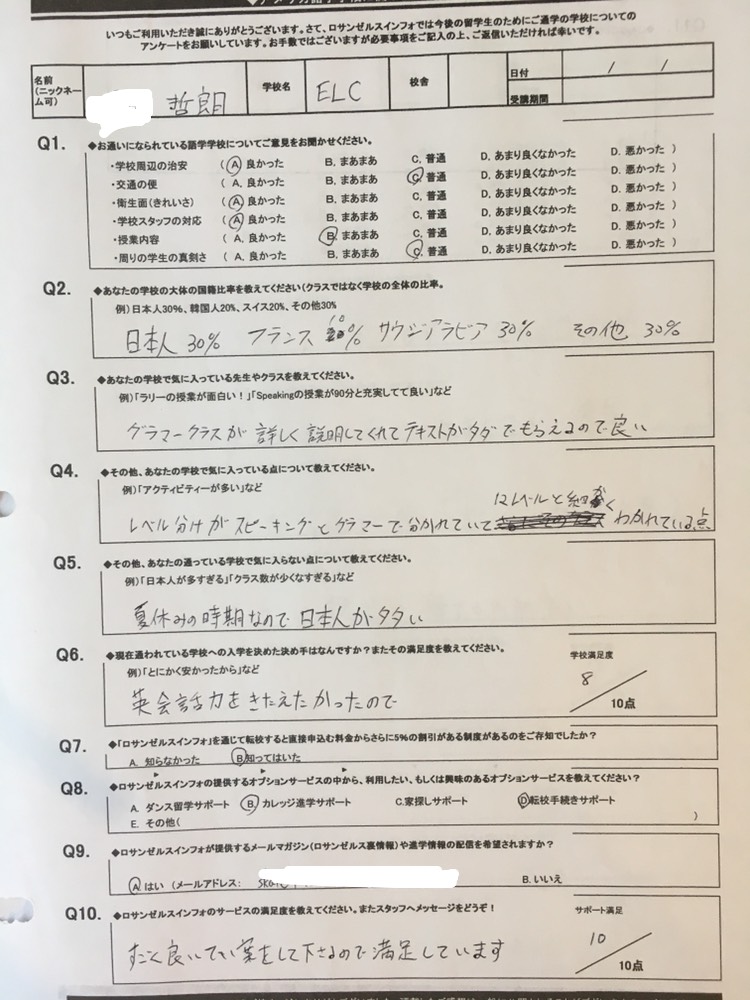 いつもご利用いただき誠にありがとうございます。さて、ロサンゼルスインフォでは今後の留学生のためにご通学の学校についての
アンケートをお願いしています。お手数ではございますが必要事項をご記入の上、ご返信いただければ幸いです。
名前(ニックネーム可) 哲朗 学校名 ELC 校舎 日付 / /
受講期間
Q1. ◆お通いになられている語学学校についてご意見をお聞かせください。
・学校周辺の治安 ( A, 良かった B, まあまあ C, 普通 D. あまり良くなかった D. 悪かった )
・交通の便 ( A, 良かった B, まあまあ C, 普通 D. あまり良くなかった D. 悪かった )
・衛生面(きれいさ) ( A, 良かった B, まあまあ C, 普通 D. あまり良くなかった D. 悪かった )
・学校スタッフの対応 ( A, 良かった B, まあまあ C, 普通 D. あまり良くなかった D. 悪かった )
・授業内容 ( A, 良かった B, まあまあ C, 普通 D. あまり良くなかった D. 悪かった )
・周りの学生の真剣さ ( A, 良かった B, まあまあ C, 普通 D. あまり良くなかった D. 悪かった )
Q2. ◆あなたの学校の大体の国籍比率を教えてください(クラスではなく学校の全体の比率。
例)日本人30%、韓国人20%、スイス20%、その他30%
日本人 30% フランス 10% サウジアラビア 30% その他 30%
Q3. ◆あなたの学校で気に入っている先生やクラスを教えてください。
例)「ラリーの授業が面白い!」「Speakingの授業が90分と充実してて良い」など
グラマークラスが詳しく説明してくれてテキストがタダでもらえるので良い
Q4. ◆その他、あなたの学校で気に入っている点について教えてください。
例)「アクティビティーが多い」など
レベル分けがスピーキングとグラマーで分かれていて 12レベルと細かく わかれている点
Q5. ◆その他、あなたの通っている学校で気に入らない点について教えてください。
例)「日本人が多すぎる」「クラス数が少くなすぎる」など
夏休みの時期なので日本人が多い
Q6. ◆現在通われている学校への入学を決めた決め手はなんですか?またその満足度を教えてください。 学校満足度
例)「とにかく安かったから」など
英会話力をきたえたかったので 8/10点
Q7. ◆「ロサンゼルスインフォ」を通じて転校すると直接申込む料金からさらに5%の割引がある制度があるのをご存知でしたか?
A. 知らなかった B.知ってはいた
Q8. ◆ロサンゼルスインフォの提供するオプションサービスの中から、利用したい、もしくは興味のあるオプションサービスを教えてください?
A. ダンス留学サポート B. カレッジ進学サポート C.家探しサポート D.転校手続きサポート
E. その他( )
Q9. ◆ロサンゼルスインフォが提供するメールマガジン(ロサンゼルス裏情報)や進学情報の配信を希望されますか?
A. はい (メールアドレス: B. いいえ
Q10. ◆ロサンゼルスインフォのサービスの満足度を教えてください。またスタッフへメッセージをどうぞ! サポート満足
すごく良いてい案をして下さるので満足しています 10/10点